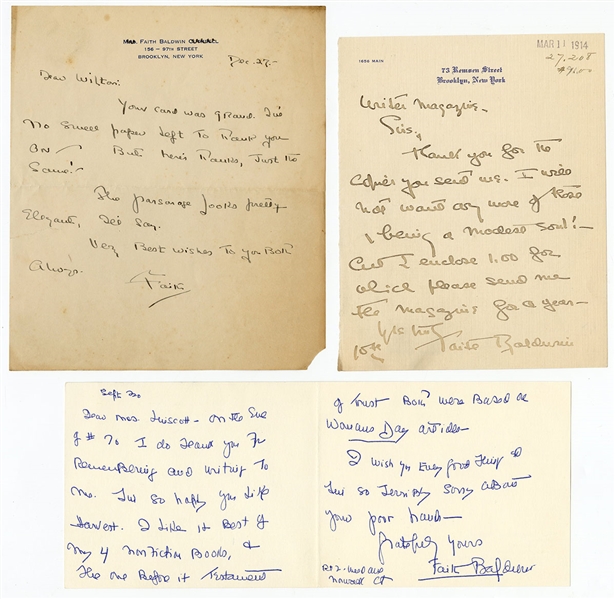 Mrs. FAITH BALDWIN
156 – 97TH STREET
BROOKLYN, NEW YORK
Dec. 27.-
Dear Wilton:
Your card was grand. I've
no small paper left to thank you
on – But here's thanks, just the
same!
The parsonage looks pretty
elegant, I'd say.
Very Best wishes to you both
Always.
Faith
1656 MAIN
MAR 11 1914
27,208
73 Remsen Street
Brooklyn, New York
Writer Magazine –
Sirs,
Thank you for the
copies you send me. I will
not want any more of these
I being a modest soul! –
But I enclose 1.00 for
which please send me
the magazine for a year –
10th
Faith Baldwin
Sept 30
Dear Mrs. Driscott – On the eve
of # 70 I do thank you for
remembering and writing to
me. I'm so happy you like
Harvest. I like it best of
my 4 nonfiction books, &
the one before it Testament
of Trust Both were Based on
Womans Day articles –
I wish you every good thing &
I'm so terribly sorry about
your poor hand –
Gratefully yours
Faith Baldwin
Norwalk CT